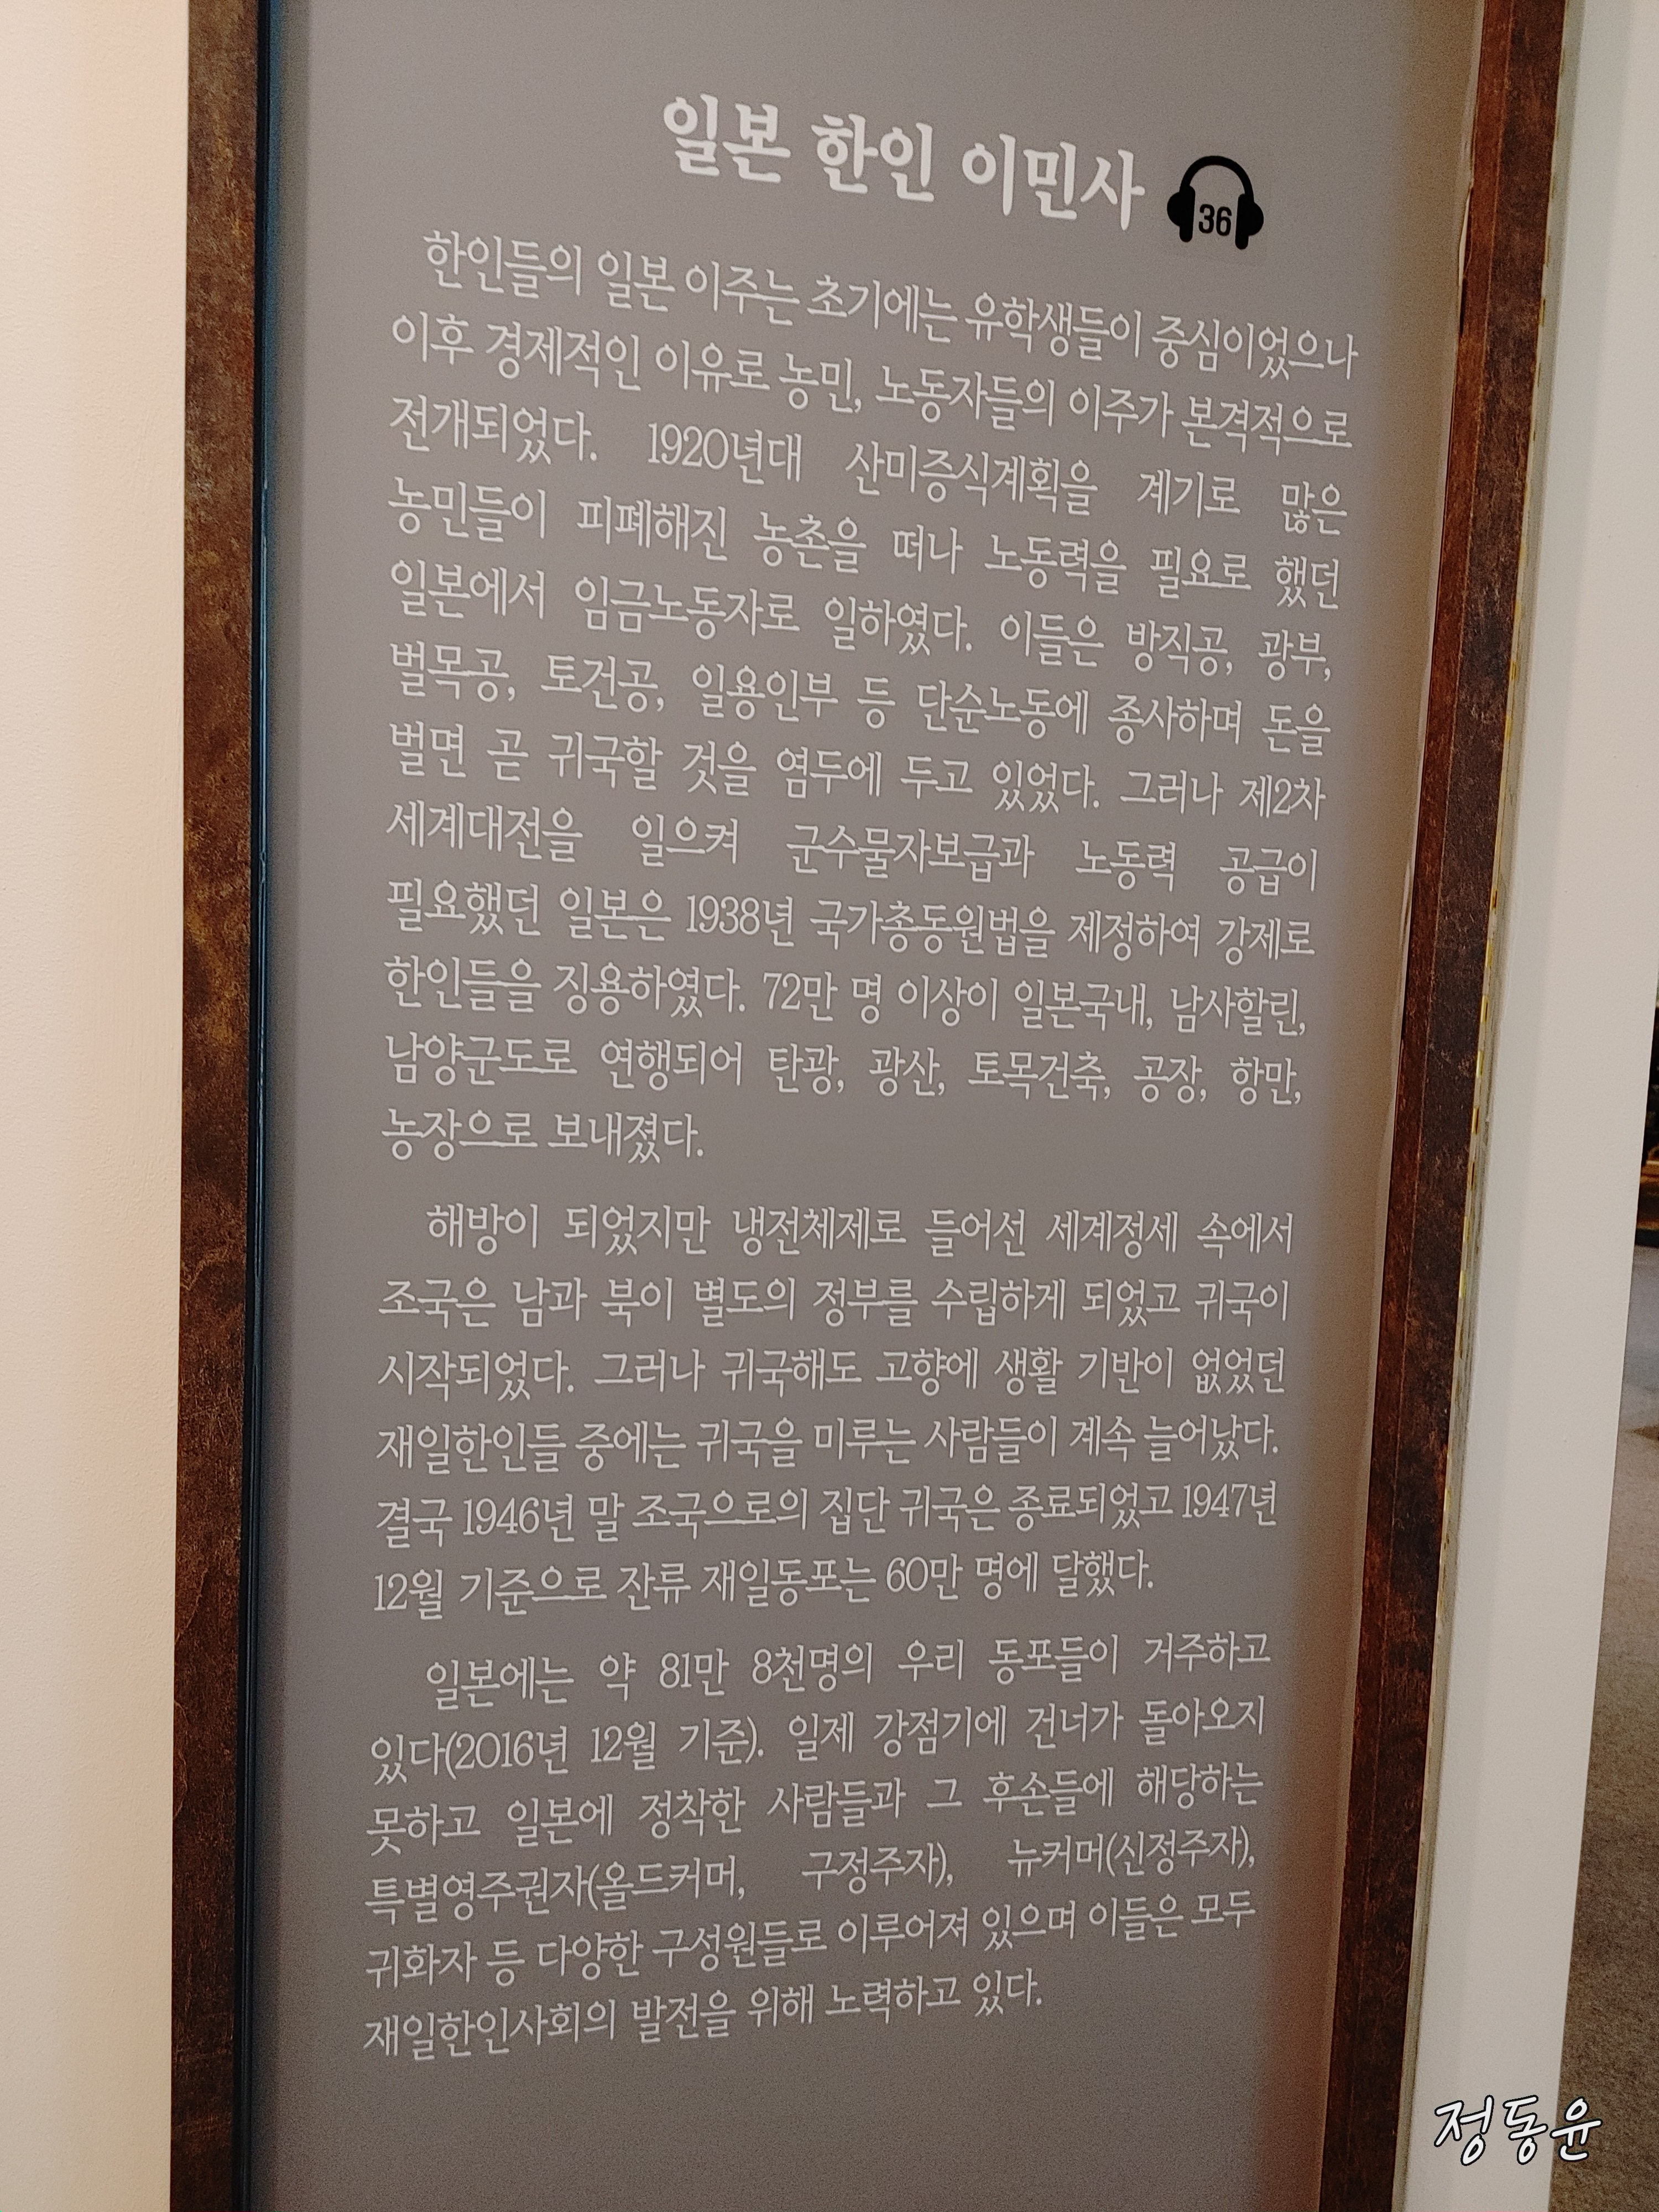 일본 한인 이민사
36
한인들의 일본 이주는 초기에는 유학생들이 중심이었으나
이후 경제적인 이유로 농민, 노동자들의 이주가 본격적으로
전개되었다. 1920년대 산미증식계획을 계기로 많은
농민들이 피폐해진 농촌을 떠나 노동력을 필요로 했던
일본에서 임금노동자로 일하였다. 이들은 방직공, 광부,
벌목공, 토건공, 일용인부 등 단순노동에 종사하며 돈을
벌면 곧 귀국할 것을 염두에 두고 있었다. 그러나 제2차
세계대전을 일으켜 군수물자보급과 노동력 공급이
필요했던 일본은 1938년 국가총동원법을 제정하여 강제로
한인들을 징용하였다. 72만 명 이상이 일본국내, 남사할린,
남양군도로 연행되어 탄광, 광산, 토목건축, 공장, 항만,
농장으로 보내졌다.
해방이 되었지만 냉전체제로 들어선 세계정세 속에서
조국은 남과 북이 별도의 정부를 수립하게 되었고 귀국이
시작되었다. 그러나 귀국해도 고향에 생활 기반이 없었던
재일한인들 중에는 귀국을 미루는 사람들이 계속 늘어났다.
결국 1946년 말 조국으로의 집단 귀국은 종료되었고 1947년
12월 기준으로 잔류 재일동포는 60만 명에 달했다.
일본에는 약 81만 8천명의 우리 동포들이 거주하고
있다(2016년 12월 기준). 일제 강점기에 건너가 돌아오지
못하고 일본에 정착한 사람들과 그 후손들에 해당하는
특별영주권자(올드커머, 구정주자), 뉴커머(신정주자),
귀화자 등 다양한 구성원들로 이루어져 있으며 이들은 모두
재일한인사회의 발전을 위해 노력하고 있다.
정동윤